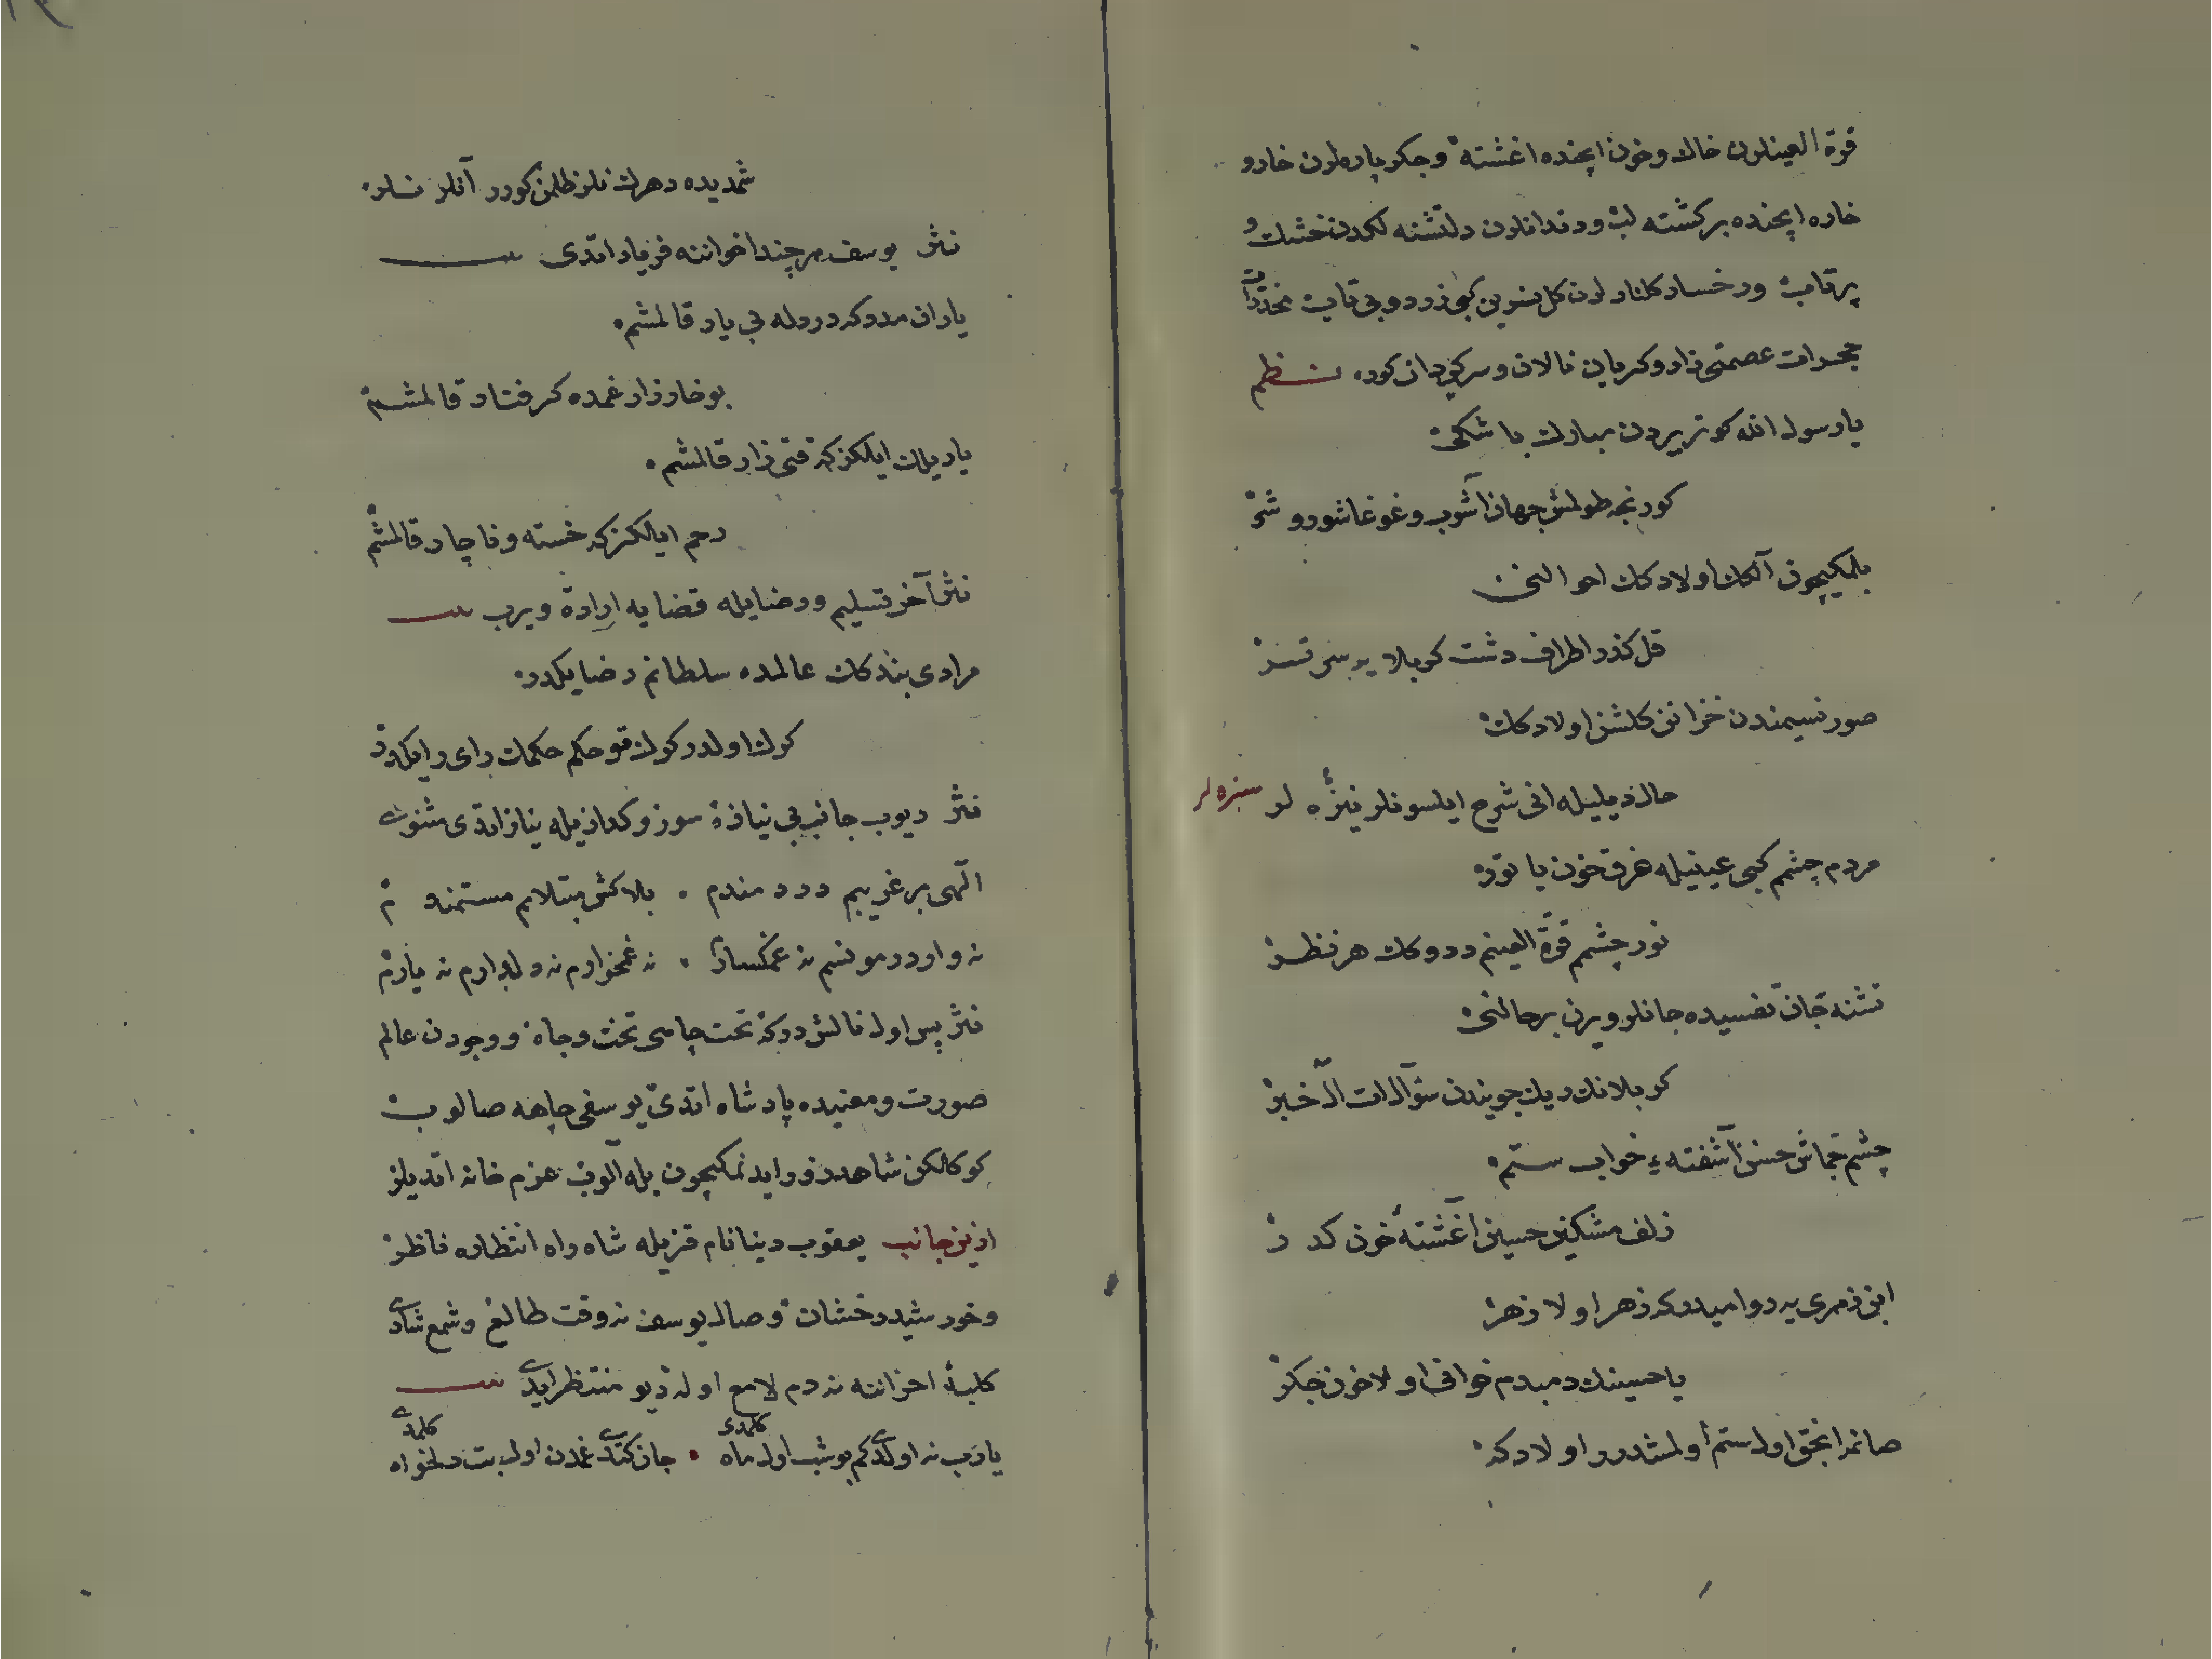 قرة العينلرن خاك وخون ايچنده اغشته و جكر پاره لرن خار و
خاره ايچنده بركشته لب ودندانلرن دلتشته لكدن خشك و
پرتاب ورخسار كلنارلرن كل نسرين كبى زرد و بى تاب مخدرات
حجرات عصمتى زار و كريان نالان و سركردان كوره نظم
يا رسول الله كوتر يردن مبارك باشكى
كور نجه طولمش جهان آشوب و غوغا شور و شر
بلمكيچون آنك اولادك احوالنى
قل كذر اطراف دشت كربلايه سر تسر
صور نسيمندن خزانن كلشن اولادك
حال ديليله انى شرح ايلسونلر نيزه لر سبزه لر
مردم چشم كبى عينيله غرق خون ياتور
نور چشم قرة العينم ددوكك هر نظر
تشنه جان تفسيده جانلر ويرن بر حالنى
كربلانك ديك جويندن سؤال ات ال خبر
چشم جماش حسن آشفته ء خواب ستم
زلف مشكين حسين اغشته خون كدر
ابن زمرى يه روا ميدركه زهر اولا زهر
يا حسينك دمبدم خوانى اولا خون جكر
صانمز انجق اول ستم اولمشدر اولادكه
شمديده دهرك نلر ظلمن كورر آنلر نلر
نثر يوسف هر چند اخواننه فرياد اتدى
ياران مدد كه دردله بى يار قالمشم
بو خارزار غمده كرفتار قالمشم
ياريلك ايلكز كه قتى زار قالمشم
رحم ايلكز كه خسته و ناچار قالمشم
نثر آخر تسليم و رضايله قضايه اراده ويرب
مرادى بندكك عالمده سلطانم رضايكدر
كرك اولدر كرك قو حكم حكمك راى رايكدر
نثر ديوب جانب بى نيازه سوز و كدازيله نياز اتدى مثنوى
الهى بر غريبم دردمندم بلاكش مبتلايم مستمندم
نه واردر مونسم نه غمكسارم نه غمخوارم نه دلدارم نه يارم
نثر پس اول نالش دركه تحت چاهى تخت و جاه و وجودن عالم
صورت و معنيده پادشاه اتدى يوسفى چاهه صالوب
كوكلكن شاهد زور ايدنمكيچون بله آلوب عزم خانه اتديلر
ازين جانب يعقوب دينا نام قزيله شاه راه انتظاره ناظر
و خورشيد درخشان وصال يوسف نه وقت طالع و شمع شادى
كلبه احزاننه نه دم لامع اوله ديو منتظر ايدى
يارب نه اولدى كم بو شب اول ماه كلمدى جان كتدى غمدن اول بت دلخواه كلمدى